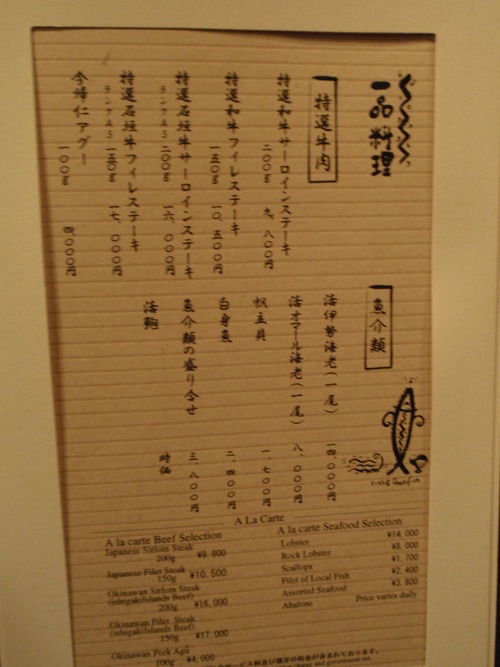 一品料理
特選牛肉
特選和牛サーロインステーキ
二〇〇g 九、八〇〇円
特選和牛フィレステーキ
一五〇g 一〇、五〇〇円
特選石垣牛サーロインステーキ
ランクA5 二〇〇g 一六、〇〇〇円
特選石垣牛フィレステーキ
ランクA5 一五〇g 一七、〇〇〇円
今帰仁アグー
一〇〇g 四、〇〇〇円
魚介類
活伊勢海老(一尾) 一四、〇〇〇円
活オマール海老(一尾) 八、〇〇〇円
帆立貝 一、七〇〇円
白身魚 二、四〇〇円
魚介類の盛り合せ 三、八〇〇円
活鮑 時価
A La Carte
A la carte Beef Selection
Japanese Sirloin Steak
200g ¥9,800
Japanese Filet Steak
150g ¥10,500
Okinawan Sirloin Steak
(ishigakiIslands Beef)
200g ¥16,000
Okinawan Filet Steak
(ishigakiIslands Beef)
150g ¥17,000
Okinawan Pork Agu
100g ¥4,000
A la carte Seafood Selection
Lobster ¥14,000
Rock Lobster ¥8,000
Scallops ¥1,700
Filet of Local Fish ¥2,400
Assorted Seafood ¥3,800
Abalone Price varies daily
サービス料及び税金の料金が含まれております。